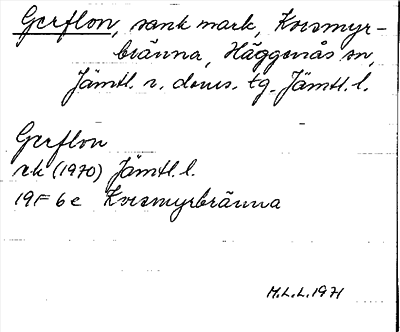 Gerflon, sank mark, Korsmyr-
bränna, Häggenås sn,
Jämtl. n. doms. tg. Jämtl. l.
Gerflon
rk (1970) Jämtl. l.
19F 6e Korsmyrbränna
M.L.L. 1971